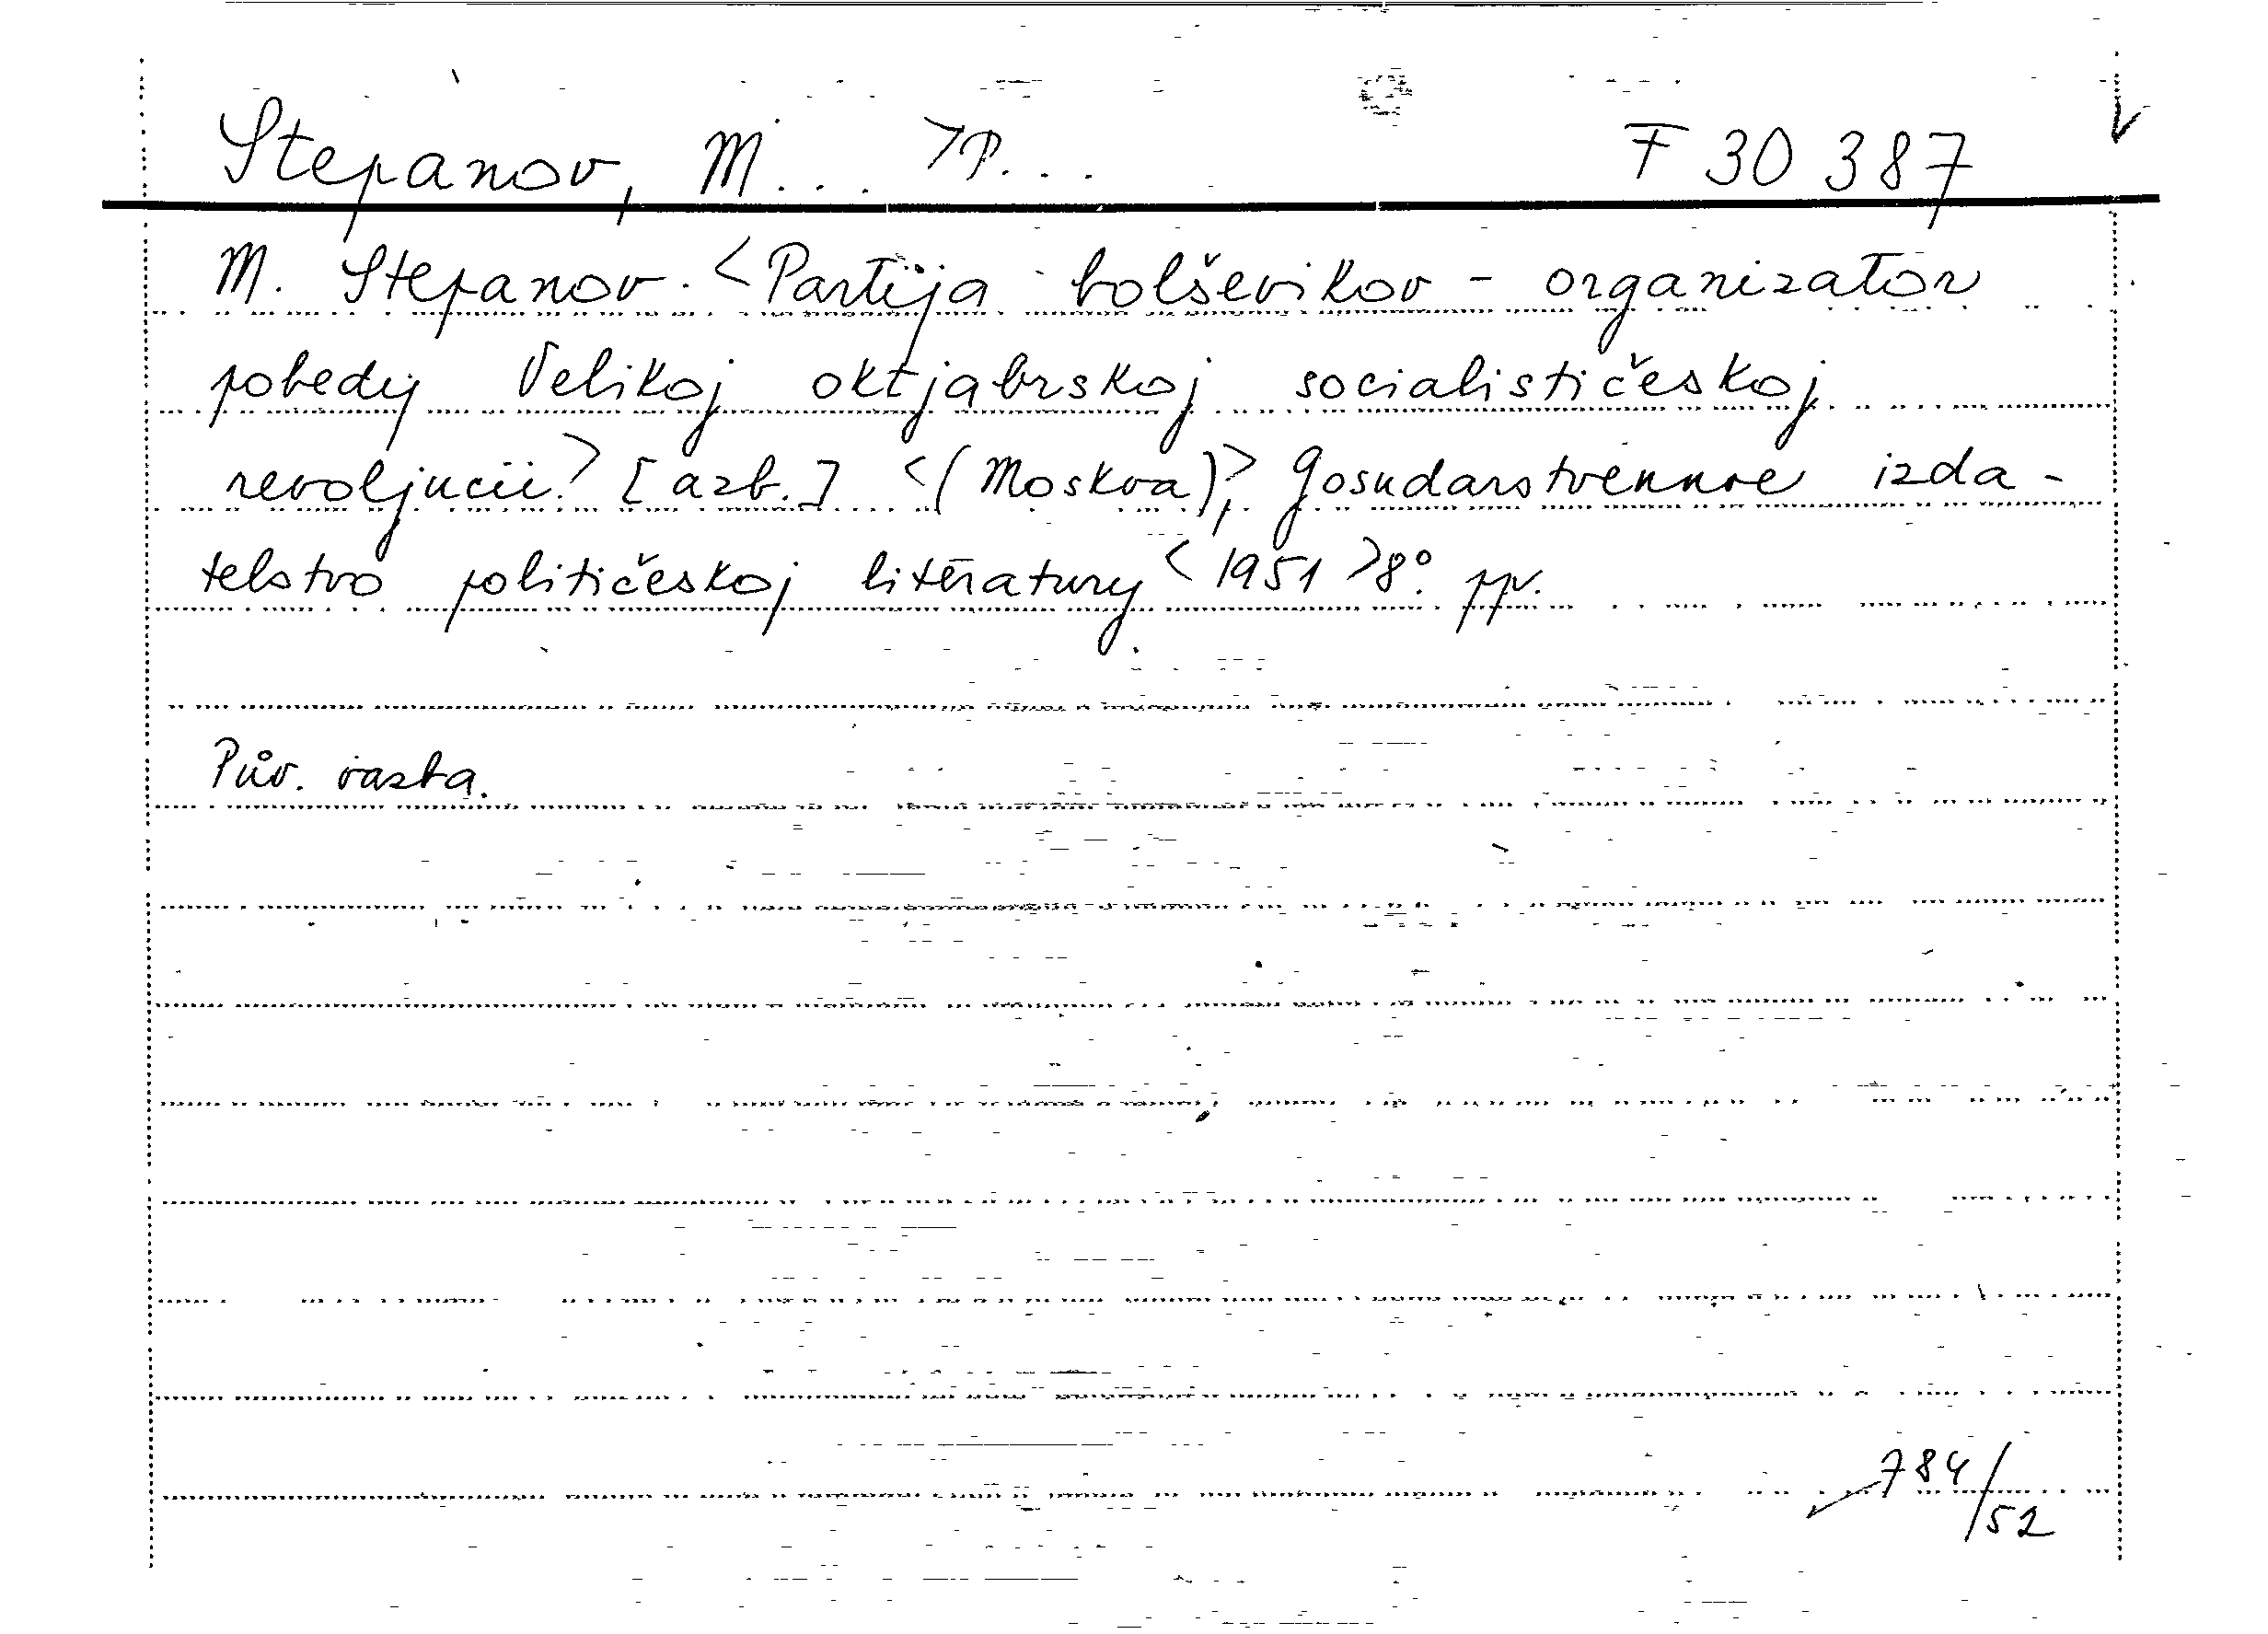 Stepanov, M... >P... F 30 387
M. Stepanov. <Partija bolševikov - organizator
pobedy Velikoj oktjabrskoj socialističeskoj
revoljucii.> [azb.] <(Moskva),> Gosudarstvennoe izda-
telstvo političeskoj literatury <1951 >8°. pp.
Pův. vazba.
784/52